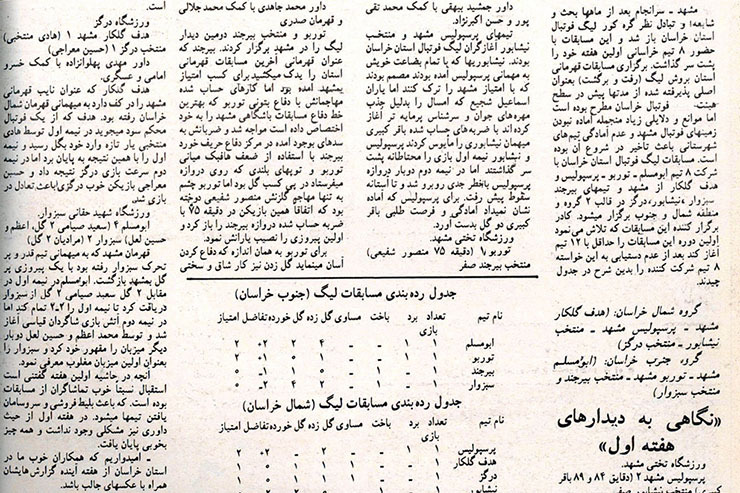 مشهد ـ سرانجام بعد از ماهها بحث و
شایعه! و تبادل نظر گره کور لیگ فوتبال
خراسان باز شد و این مسابقات با
حضور ۸ تیم خراسانی اولین هفته خود را
پشت سر گذاشت. برگزاری مسابقات قهرمانی
استان بروش لیگ (رفت و برگشت) بعنوان
اصلی پذیرفته شده از مدتها پیش در سطح
هیئت فوتبال خراسان مطرح بوده است
اما موانع و دلایلی زیاد منجمله آماده نبودن
زمینهای فوتبال مشهد و عدم آمادگی تیم‌های
شهرستانی باعث تاخیر در شروع آن بوده
است. مسابقات لیگ فوتبال استان خراسان با
شرکت ۸ تیم ابومسلم ـ توربو ـ پرسپولیس و
هدف گلکار از مشهد و تیمهای بیرجند
سبزوار، نیشابور، درگز در قالب ۲ گروه و
منطقه شمال و جنوب برگزار میشود. کادر
برگزار کننده این مسابقات که تلاش می‌نمود
اولین دوره این مسابقات را حداقل با ۱۲ تیم
آغاز کند بعد از عدم دستیابی به این خواسته
۸ تیم شرکت کننده را بدین شرح در جدول
چیدند.
گروه شمال خراسان: (هدف گلکار
مشهد ـ پرسپولیس مشهد ـ منتخب
نیشابور ـ منتخب درگز)
گروه جنوب خراسان: (ابومسلم
مشهد ـ توربو مشهد ـ منتخب بیرجند و
منتخب سبزوار)
«نگاهی به دیدارهای
هفته اول»
ورزشگاه تختی مشهد.
پرسپولیس مشهد ۲ (دقایق ۸۴ و ۸۹ باقر
منتخب نیشابور صفر
داور جمشید بیهقی با کمک محمد تقی
پور و حسن اکبرنژاد.
تیمهای پرسپولیس مشهد و منتخب
نیشابور آغازگران لیگ فوتبال استان خراسان
بودند. نیشابوریها که با تمام بضاعت خویش
به مهمانی پرسپولیس آمده بودند مصمم بودند
با امتیاز مشهد را ترک کنند اما یاران
اسماعیل شجیع که امسال را بدلیل جذب
مهره‌های جوان و سرشناس پرمایه تر آغاز
کرده‌اند با ضربه‌های حساب شده باقر کبیری
میهمان نیشابوری را مأیوس کردند پرسپولیس
و نیشابور نیمه اول بازی را محتاطانه پشت
سر گذاشتند اما در نیمه دوم دوبار دروازه
پرسپولیس باخطر جدی روبرو شد و تا آستانه
سقوط پیش رفت. برای پرسپولیس که آماده
نشان نمیداد آمادگی و فرصت طلبی باقر
کبیری دو گل بدست آورد.
ورزشگاه تختی مشهد.
توربو ۱ (دقیقه ۷۵ منصور شفیعی)
منتخب بیرجند صفر
داور محمد جاهدی با کمک محمد جلالی
و قهرمان صدری
توربو و منتخب بیرجند دومین دیدار
لیگ را در مشهد برگزار کردند. بیرجند که
عنوان قهرمانی آخرین مسابقات قهرمانی
استان را یدک میکشید برای کسب امتیاز
بمشهد آمده بود اما کارهای حساب شده
مهاجمانش با دفاع بتونی توربو که بهترین
خط دفاع مسابقات باشگاهی مشهد را به خود
اختصاص داده است مواجه شد و ضرباتش به
سدهای بوجود آمده در مرکز دفاع حریف خورد
بیرجند با استفاده از ضعف هافبک میانی
توربو و توپهای بلندی که روی دروازه
میفرستاد در پی کسب گل بود اما توربو چشم
به تنها مهاجم گلزنش منصور شفیعی دوخته
بود که اتفاقا همین بازیکن در دقیقه ۷۵ با
ضربه حساب شده دروازه بیرجند را باز کرد و
اولین پیروزی را نصیب یارانش نمود.
برای توربو به همان اندازه که دفاع کردن
آسان مینماید گل زدن نیز کار شاق و سختی
است.
ورزشگاه درگز
هدف گلکار مشهد ۱ (هادی منتخبی)
منتخب درگز ۱ (حسین معراجی)
داور مهدی پهلوانزاده با کمک خسرو
امامی و عسگری.
هدف گلکار که عنوان نایب قهرمانی
مشهد را در کف دارد به میهمانی قهرمان شمال
خراسان رفته بود. هدف که از یک فوتبال
محکم سود میجوید در نیمه اول توسط هادی
منتخبی یار تازه وارد خود بگل رسید و نیمه
اول را با همین نتیجه به پایان برد اما در نیمه
دوم سرعت بازی درگز نتیجه داد و حسین
معراجی بازیکن خوب درگزی باعث تعادل در
بازی شد.
ورزشگاه شهید حقانی سبزوار.
ابومسلم ۴ (سعید صیامی ۲ گل، اعظم و
حسین لعل) سبزوار ۲ (مرادیان ۲ گل)
قهرمان مشهد که به میهمانی تیم قدر و پر
تحرک سبزوار رفته بود با یک پیروزی پر
گل بمشهد بازگشت. ابومسلم در نیمه اول در
مقابل ۲ گل سعید صیامی ۲ گل از سبزوار
دریافت کرد تا نیمه اول را ۲ـ۲ تمام کند اما
در نیمه دوم آتش بازی شاگردان قیاسی آغاز
شد و توسط محمد اعظم و حسین لعل دوبار
دیگر میزبان را مقهور خود کرد و سبزوار را
بعنوان اولین میزبان مغلوب معرفی نمود.
آنچه در حاشیه اولین هفته گفتنی است
استقبال نسبتا خوب تماشاگران از مسابقات
بوده است که باعث بلیط فروشی و سروسامان
یافتن تیمها میشود. در هفته اول از حیث
داوری نیز مشکلی وجود نداشت و همه چیز
بخوبی پایان یافت.
ـ امیدواریم که همکاران خوب ما در
استان خراسان از هفته آینده گزارش‌هایشان
همراه با عکسهای جالب باشد.
جدول رده‌بندی مسابقات لیگ (جنوب خراسان)
نام تیم تعداد بازی برد باخت مساوی گل زده گل خورده تفاضل امتیاز
ابومسلم ۱ ۱ - - ۴ ۲ ۲+ ۲
توربو ۱ ۱ - - ۱ ۰ ۱+ ۲
بیرجند ۱ - ۱ - ۰ ۱ ۱- ۰
سبزوار ۱ - ۱ - ۲ ۴ ۲- ۰
جدول رده‌بندی مسابقات لیگ (شمال خراسان)
نام تیم تعداد بازی برد باخت مساوی گل زده گل خورده تفاضل امتیاز
پرسپولیس ۱ ۱ - - ۲ ۰ ۲+ ۲
هدف گلکار
درگز
نیشابور